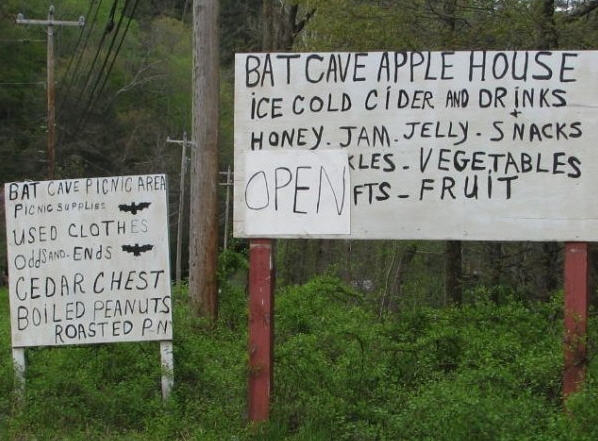 BAT CAVE PICNIC AREA
PICNIC SUPPLIES
USED CLOTHES
Odds AND-ENDS
CEDAR CHEST
BOILED PEANUTS
ROASTED P.N
BAT CAVE APPLE HOUSE
iCE COLD CiDER AND DRiNKS
HONEY. JAM. JELLY - SNACKS
KLES - VEGETABLES
OPEN
FTS - FRUIT